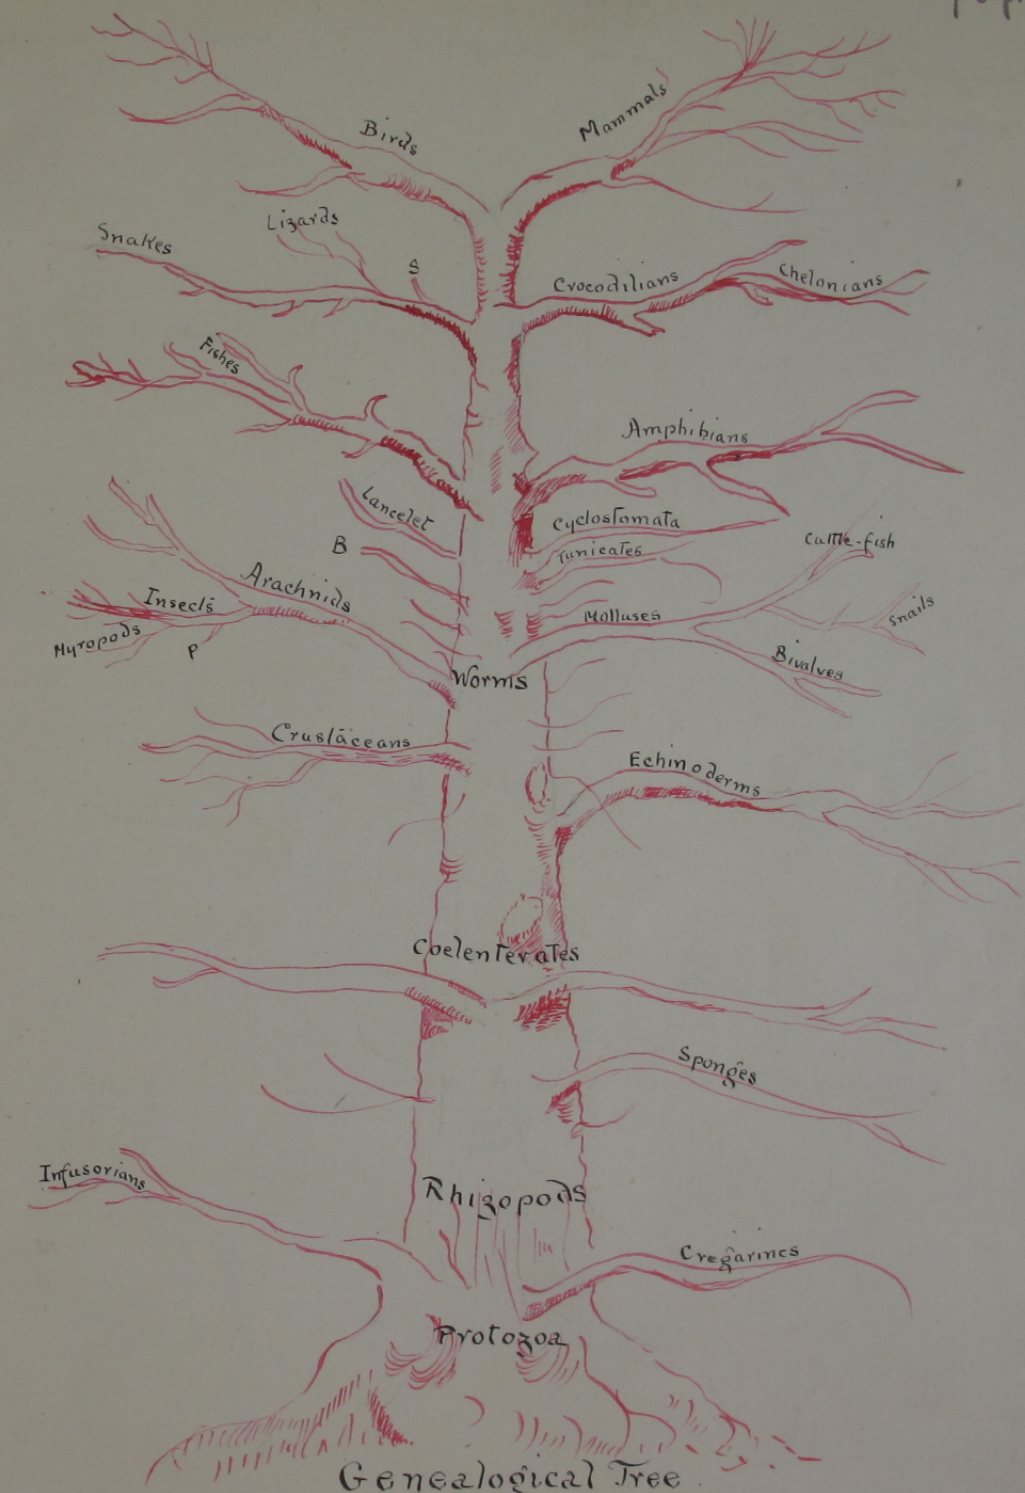 Birds
Mammals
Lizards
Snakes
S
Crocodilians
Chelonians
Fishes
Amphibians
Lancelet
Cyclostomata
B
Tunicates
Cuttle-fish
Arachnids
Insects
Molluses
Snails
Myropods
P
Bivalves
Worms
Crustaceans
Echinoderms
Coelenterates
Sponges
Infusorians
Rhizopods
Cregarines
Protozoa
Genealogical Tree.